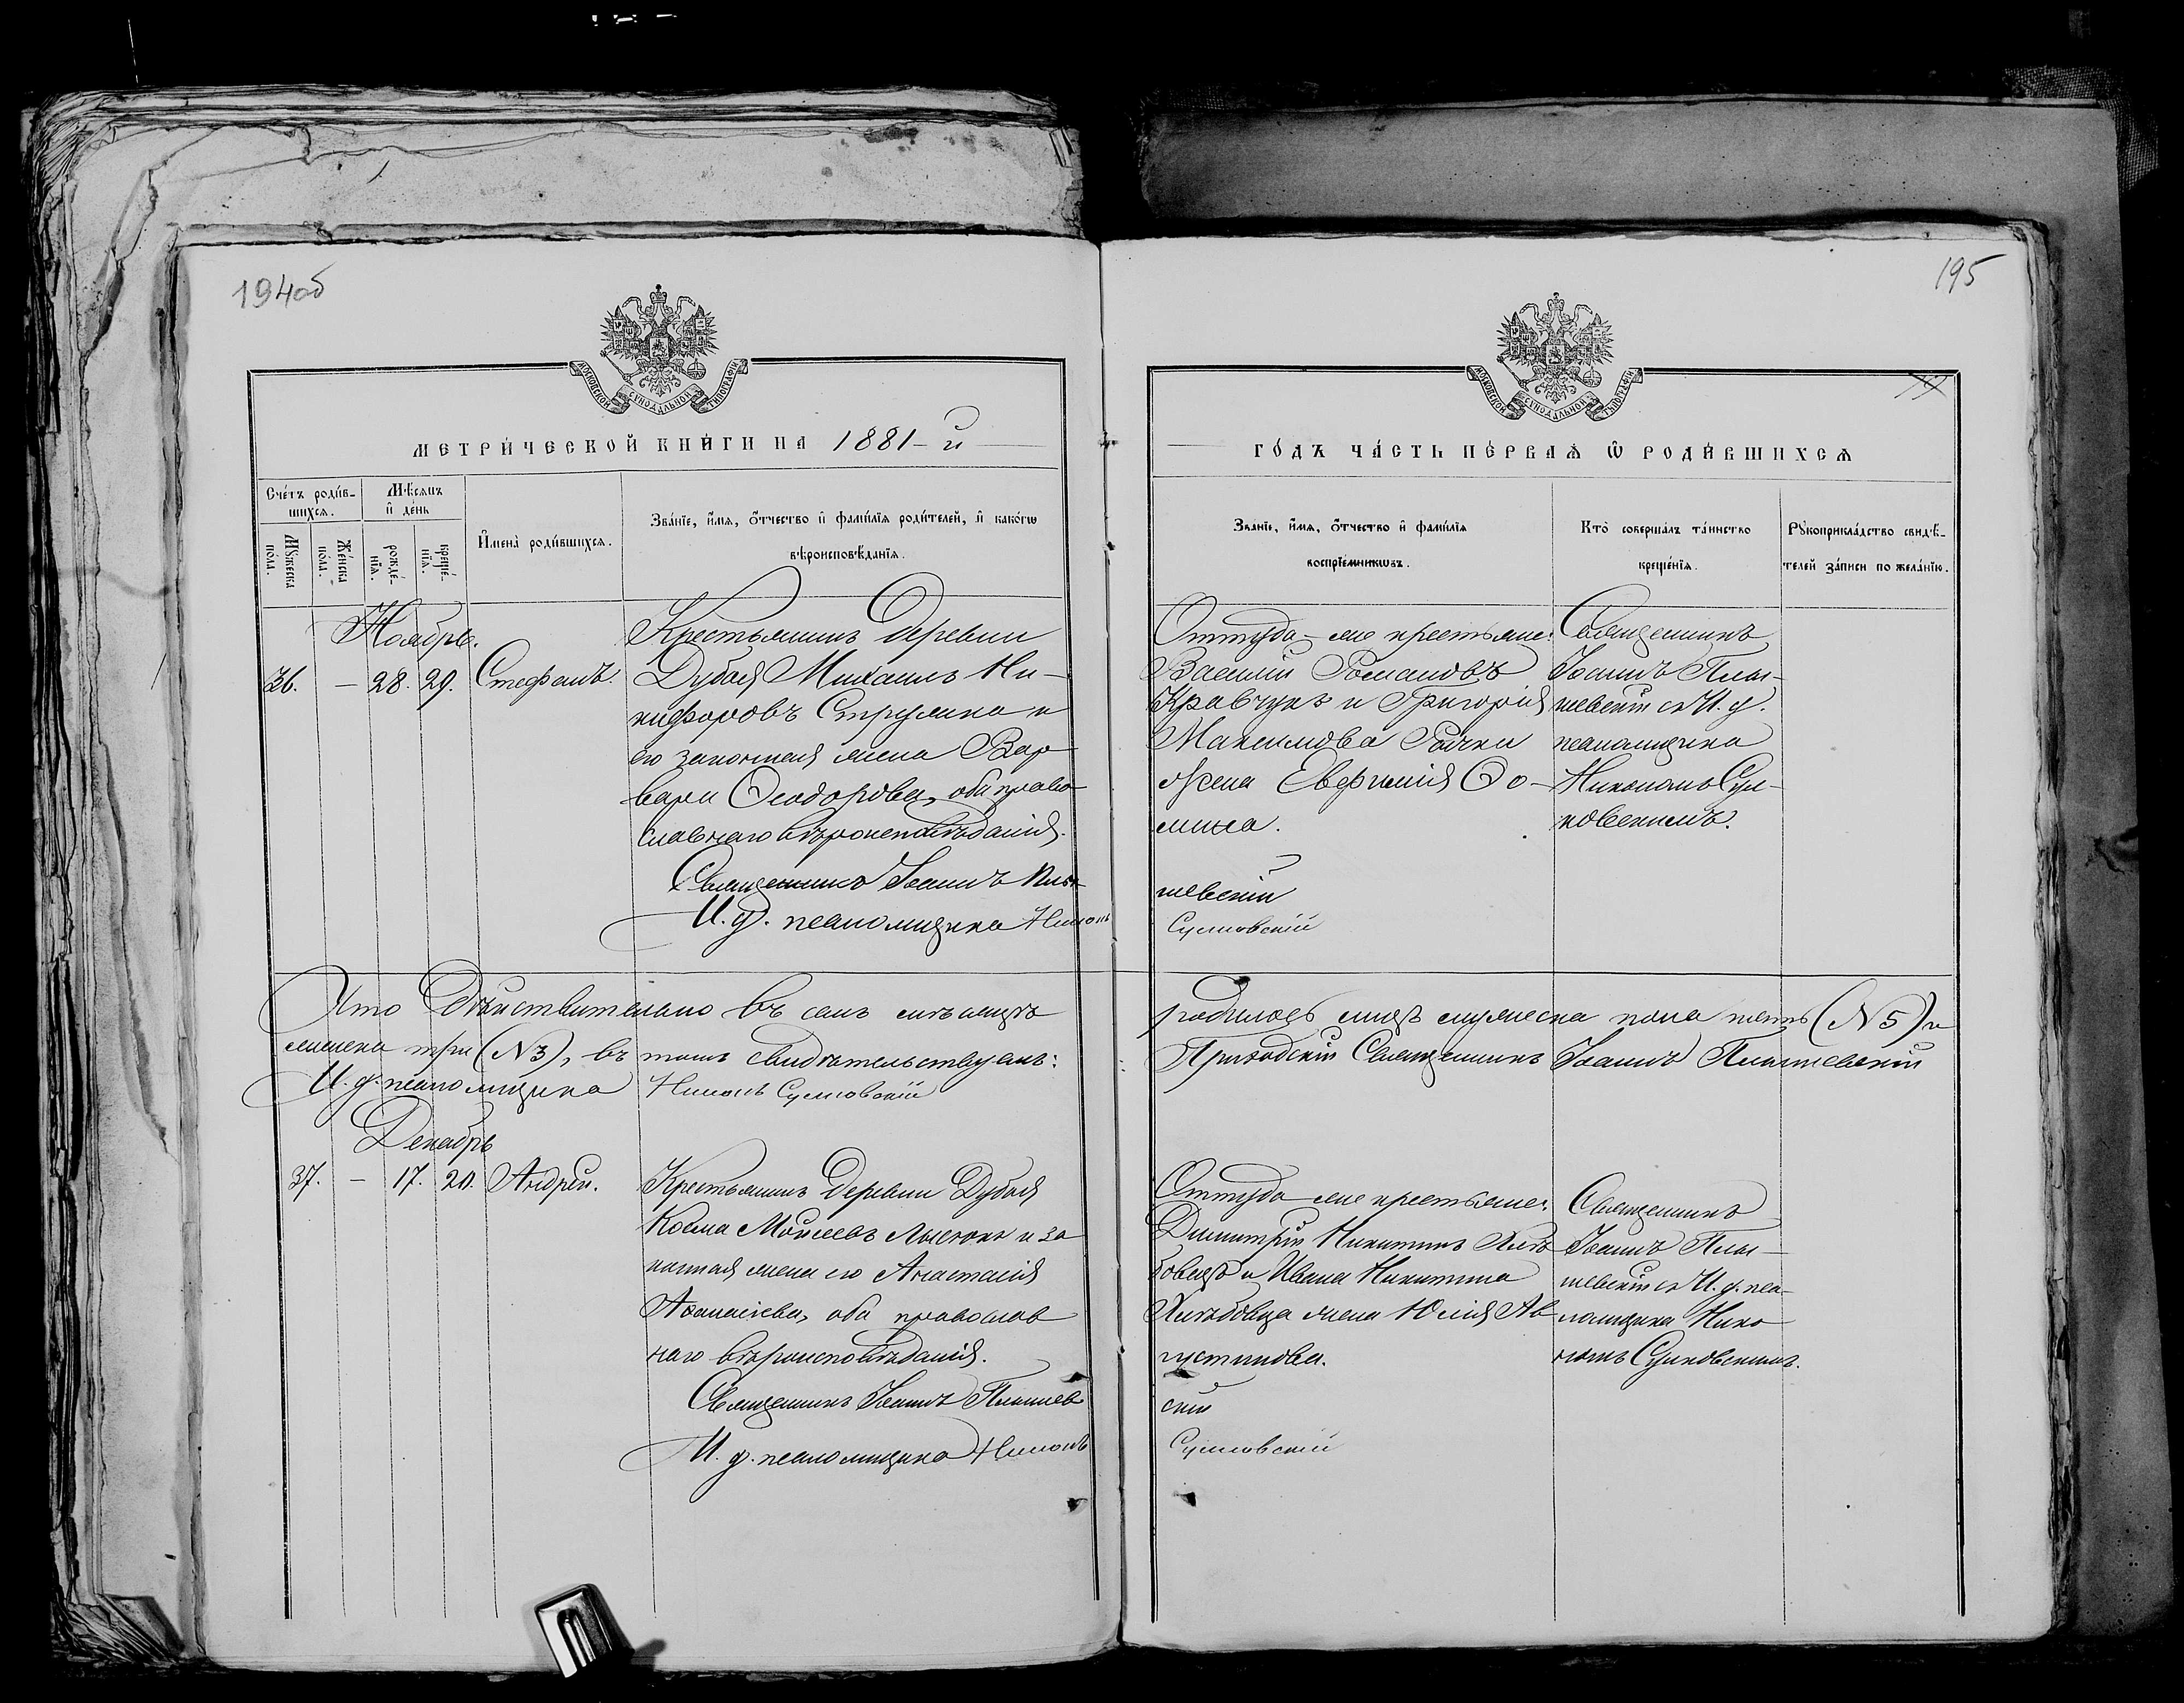 194об
195
МОСКОВСКОЙ СΥНОДАЛЬНОЙ ТИПОГРАФІИ
МОСКОВСКОЙ СΥНОДАЛЬНОЙ ТИПОГРАФІИ
МЕТРИ́ЧЕСКОЙ КНИ́ГИ НА 1881-й
ГО́ДЪ ЧА́СТЬ ПЕ́РВАѦ Ѡ РОДИ́ВШИХСѦ
Сче́тъ роди́в-
шихсѧ.
Мѣ́сѧцъ
и де́нь
Мꙋ́жеска
по́ла.
Же́нска
по́ла.
рожде́
нїѧ.
креще́
нїѧ.
И҆мена̀ роди́вшихсѧ.
Зва́нїе, и҆́мѧ, ѻ҆́тчество и҆ фами́лїѧ роди́телей, и҆ како́гѡ
вѣроисповѣ́данїѧ.
Зва́нїе, и҆́мѧ, ѻ҆́тчество и҆ фами́лїѧ
воспрїе́мникѡвъ.
Кто̀ соверша́лъ та́инство
креще́нїѧ.
Рꙋкоприкла́дство свидѣ́-
телей за́писи по жела́нїю.
Ноябрь.
36. — 28. 29. Стефанъ.
Крестьянинъ деревни
Дубая Михаилъ Ни-
кифоровъ Струмина и
его законная жена Вар
вара Ѳеодорова, оба право
славнаго вѣроисповѣданія.
Священникъ Іоаннъ
И. д. псаломщика Никонъ
Оттуда-же крестьяне:
Василій Романовъ
Кравчукъ и Григорія
Максимова Рочки
жена Евфимія Ѳо-
мина.
шевскій
Сулковскій
Священникъ
Іоаннъ Плы-
шевскій съ И. д.
псаломщика
Никономъ Сул-
ковскимъ.
Что дѣйствительно въ семъ мѣсяцѣ
родилось лицъ мужеска пола пять (№ 5) и
женска три (№ 3), въ томъ свидѣтельствуемъ:
Приходскій Священникъ Іоаннъ Плышевскій
И. д. псаломщика Никонъ Сулковскій
Декабрь
37. — 17. 20. Андрей.
Крестьянинъ деревни Дубая
Косма Моисеевъ и за
конная жена его Анастасія
Аѳанасіева, оба православ
наго вѣроисповѣданія.
Священникъ Іоаннъ Плышев
И. д. псаломщика Никонъ
Оттуда же крестьяне:
Димитрій Никитинъ Хлѣ
бовецъ и Ивана Никитина
Хлѣбовца жена Юлія Ав
густинова.
скій
Сулковскій
Священникъ
Іоаннъ Плы-
шевскій съ И. д. пса-
ломщика Нико
номъ Сулковскимъ.